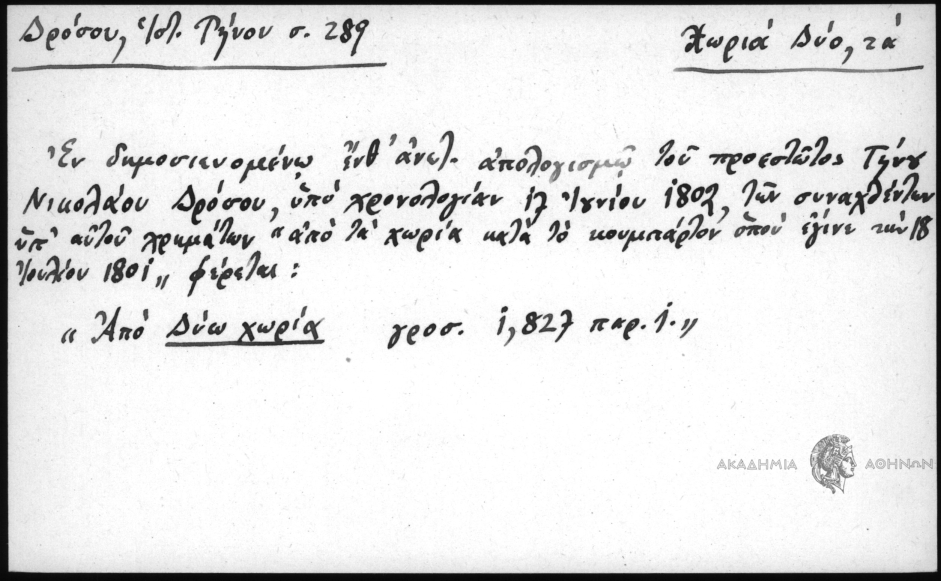 Δρόσου, Ἱστ. Τήνου σ. 289
Χωριά Δύο, τά
Ἐν δημοσιευομένῳ ἔνθ' ἀνωτ. ἀπολογισμῷ τοῦ προεστῶτος Τήνου
Νικολάου Δρόσου, ὑπό χρονολογίαν 17 Ἰυνίου 1802, τῶν συναχθέντων
ὑπ' αὐτοῦ χρημάτων "ἀπό τά χωρία κατά τό κουμπάρτον ὁποῦ ἔγινε τήν 18
Ἰουλίου 1801" φέρεται:
"Ἀπό Δύω χωρία γροσ. 1,827 παρ. 1."
ΑΚΑΔΗΜΙΑ ΑΘΗΝΩΝ